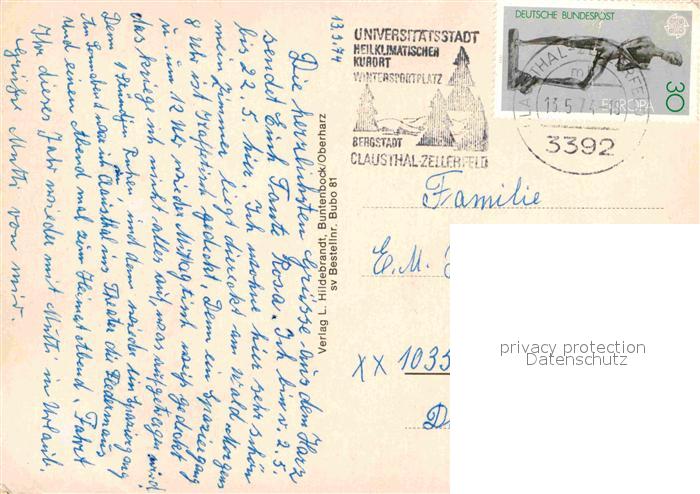 13.5.74
Die herrlichsten Grüsse aus dem Harz
sendet Euch Tante Rosa. Ich bin v. 2.5.
bis 22.5. hier. Ich wohne hier sehr schön
mein Zimmer liegt direckt am Wald. Morgens
8 Uhr ist Kaffetisch gedeckt. Dann ein Spaziergang
u. um 12 Uhr wieder Mittagtisch gedeckt
das kriege ich nicht alles auf, was aufgetragen wird
Dann 1 Stündchen Ruhen und dann wieder ein Spaziergang
Am Sonnabend war in Clausthal ins Theater die Fledermaus
und einen Abend mal zum Heimat Abend. Fahrt
Ihr dieses Jahr wieder mit Mutti in Urlaub.
Grüsse Mutti von mir.
Verlag L. Hildebrandt, Buntenbock/Oberharz
sv Bestellnr. Bubo 81
UNIVERSITÄTSSTADT
HEILKLIMATISCHER
KURORT
WINTERSPORTPLATZ
BERGSTADT
CLAUSTHAL-ZELLERFELD
DEUTSCHE BUNDESPOST
CEPT
EUROPA
30
13.5.74
3392
Familie
E. M.
XX 1035
privacy protection
Datenschutz